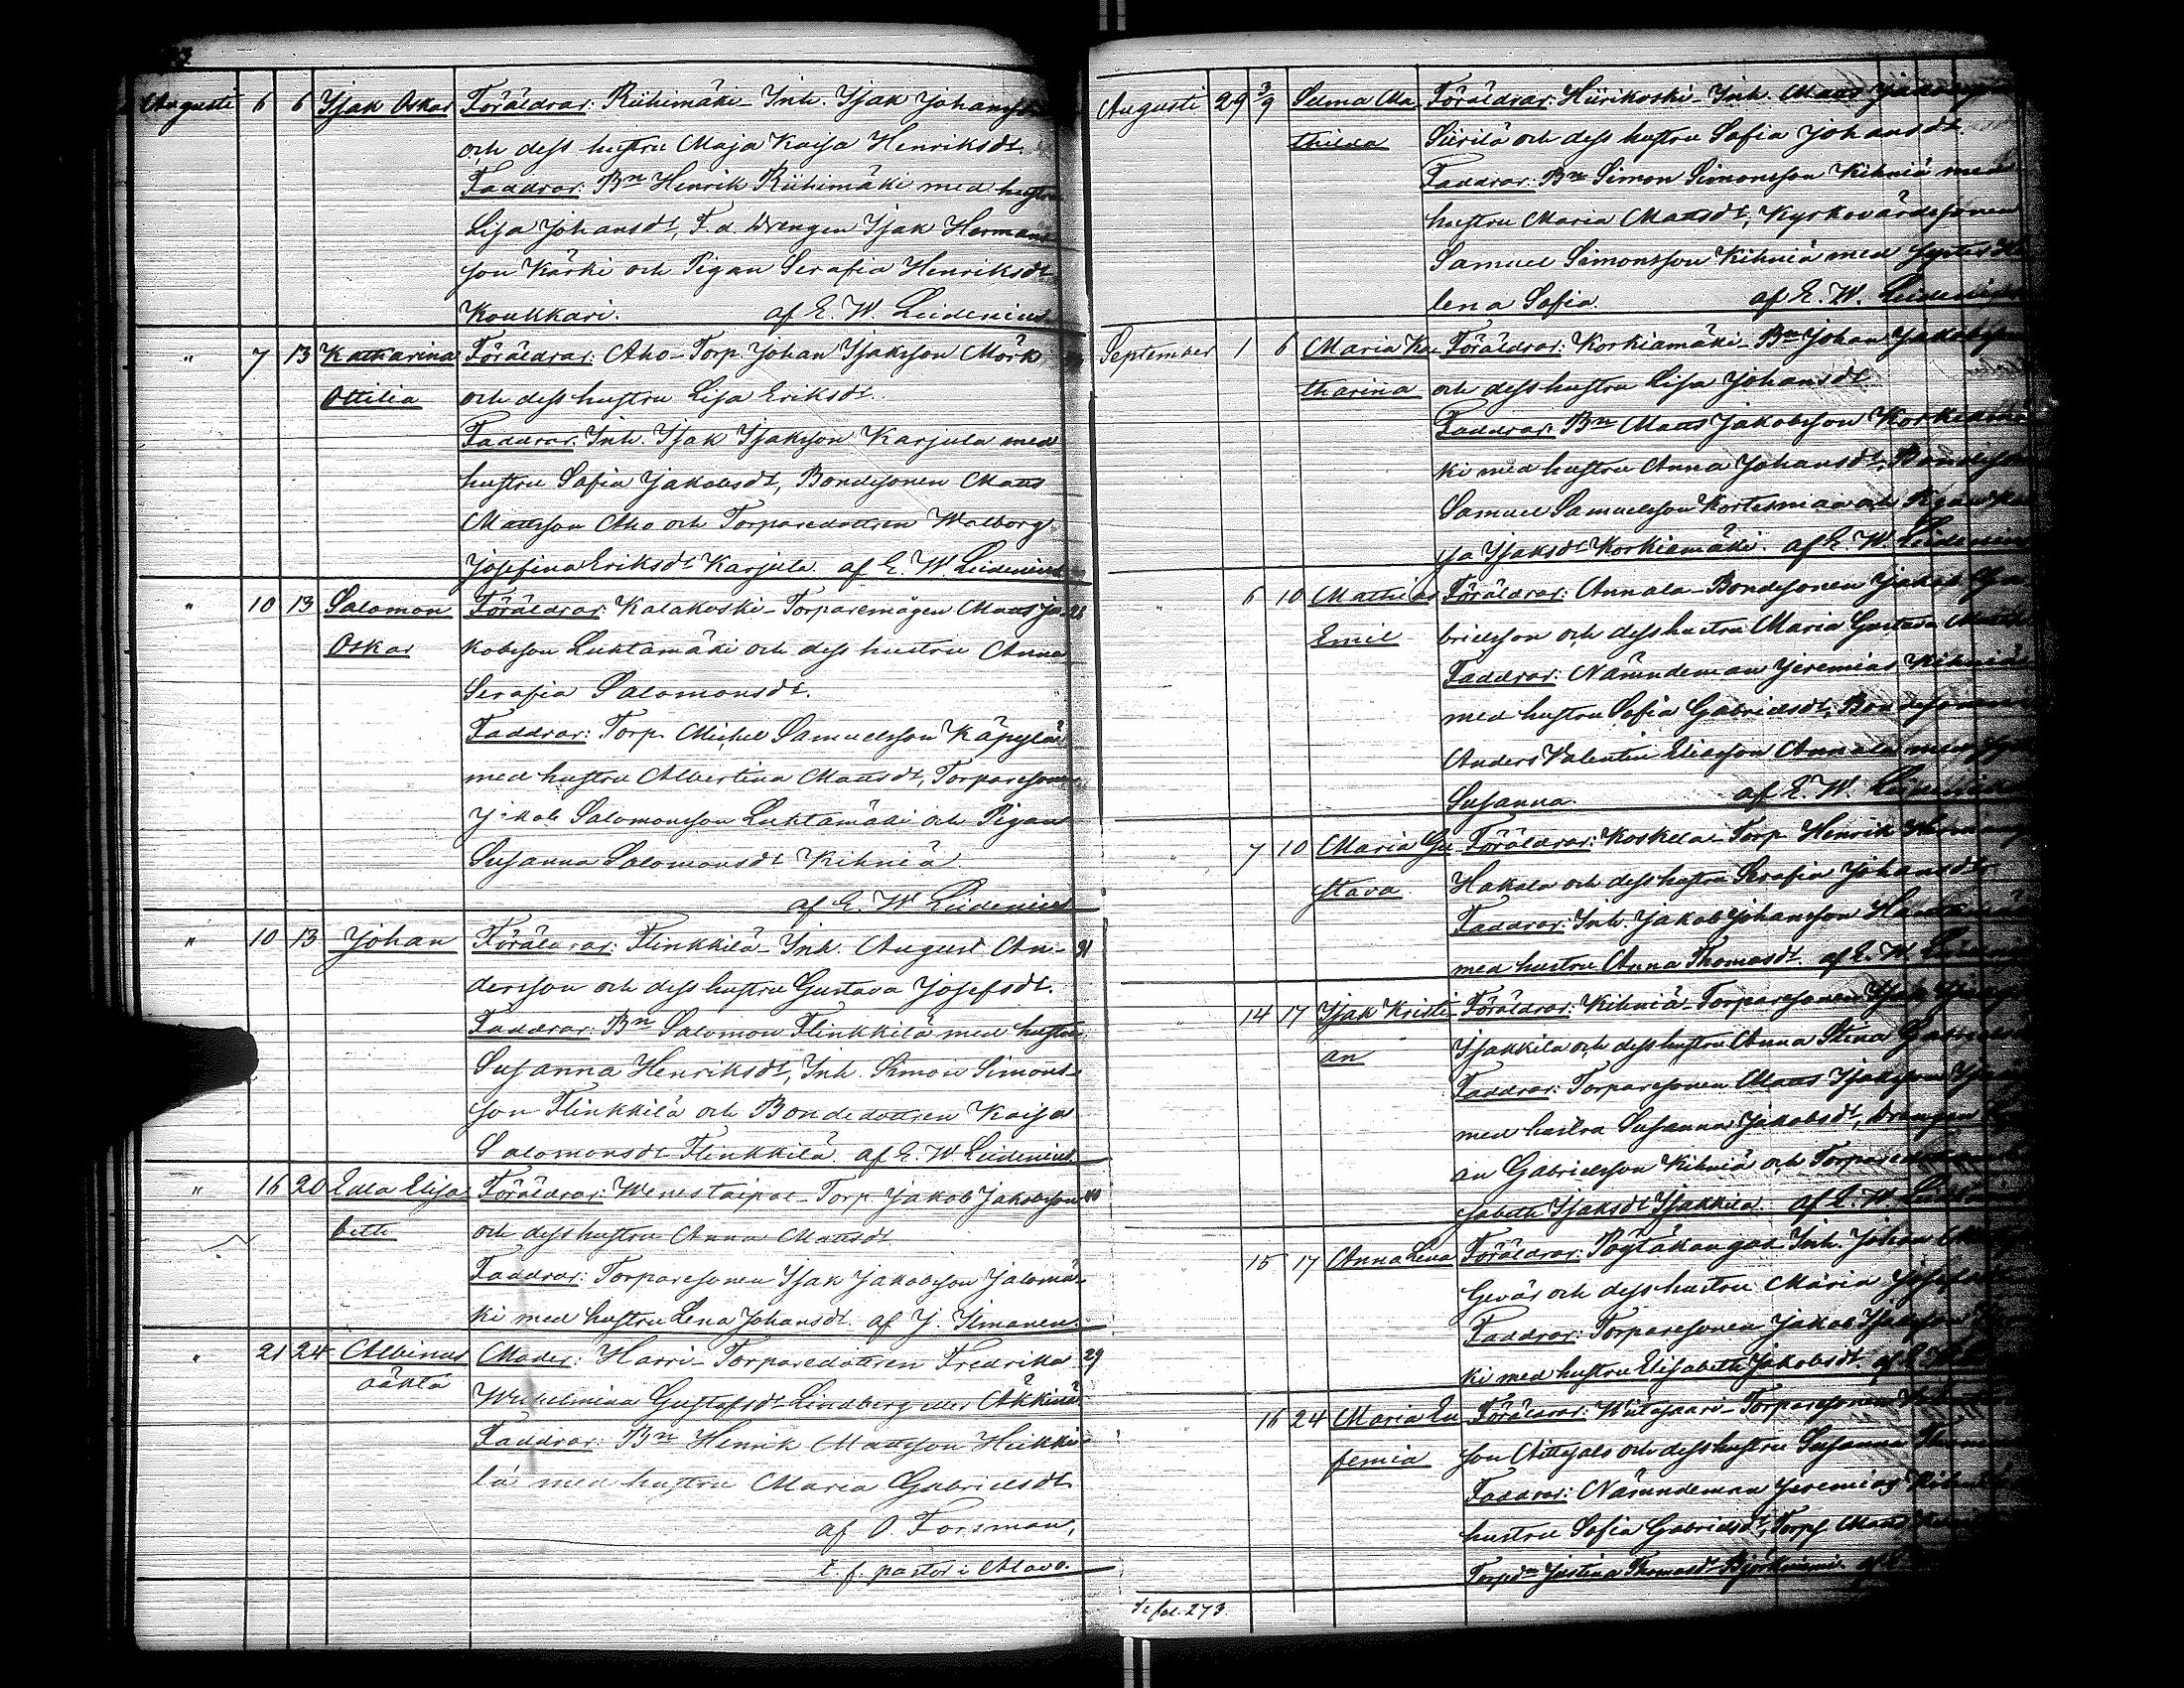 Augusti 6 6 Isak Oskar Föräldrar: Riihimäki Inh. Isak Johansson
och dess hustru Maja Kaisa Henriksdt.
Faddrar: Bn Henrik Riihimäki med hustru
Lisa Johansdt, F.d Drengen Isak Hermans
son Kärki och Pigan Serafia Henriksdt
Koukkari. af E. W. Leidenius
" 7 13 Katharina Föräldrar: Aho-Torp. Johan Isaksson Mörk
Ottilia och dess hustru Lisa Eriksdt.
Faddrar: Inh. Isak Isaksson Karjula med
hustru Sofia Jakobsdt, Bondesonen Matts
Mattsson Aho och Torparedottren Walborg
Josefina Eriksdt Karjula af E. W. Leidenius
" 10 13 Salomon Föräldrar: Kalakoski-Torparemågen Matts Ja-
Oskar kobsson Luktamäki och dess hustru Anna
Serafia Salomonsdt.
Faddrar: Torp. Michel Samuelsson Käpylä
med hustru Albertina Mattsdt, Torparesonen
Jakob Salomonsson Luktamäki och Pigan
Susanna Salomonsdt Kihniä
af E. W. Leidenius
" 10 13 Johan Föräldrar: Flinkkilä-Inh. August An- 31
dersson och dess hustru Gustava Josefsdt.
Faddrar: Bn Salomon Flinkkilä med hustru
Susanna Henriksdt, Inh. Simon Simons-
son Flinkkilä och Bondedottren Kaisa
Salomonsdt Flinkkilä. af E. W. Leidenius
" 16 20 Edla Elisa- Föräldrar: Wenestaipal-Torp. Jakob Jakobsson 40
beth och dess hustru Anna Mattsdt
Faddrar: Torparesonen Isak Jakobsson Jalomä-
ki med hustru Lena Johansdt. af J. Ilmonen
" 21 24 Albinus Moder: Harri-Torparedottren Fredrika 29
oäkta Wilhelmina Gustafsdt Lindberg eller Åkkinä
Faddrar: Bn Henrik Mattsson Heikki-
lä med hustru Maria Gabrielsdt
af O. Forsman,
t. f. pastor i Alavo.
Augusti 29 3/9 Selma Ma- Föräldrar: Hiirikoski-Inh. Matts
thilda Siirilä och dess hustru Sofia Johansdt.
Faddrar: Bn Simon Simonsson Kihniä med
hustru Maria Mattsdt, Kyrkovärdesonen
Samuel Simonsson Kihniä med syster He-
lena Sofia. af E. W. Leidenius
September 1 6 Maria Ka- Föräldrar: Korkiamäki-Bn Johan Jakobsson
tharina och dess hustru Lisa Johansdt
Faddrar: Bn Matts Jakobsson Korkiamä-
ki med hustru Anna Johansdt, Bondeson
Samuel Samuelsson Kortesmaa och Pigan
sa Isaksdt Korkiamäki. af E. W. Leidenius
" 6 10 Mathias Föräldrar: Annala-Bondesonen Jakob Ga-
Emil brielsson och dess hustru Maria Gustava
Faddrar: Nämndeman Jeremias Kihniä
med hustru Sofia Gabrielsdt, Bondesonen
Anders Valentin Eliasson Annala med
Susanna. af E. W. Leidenius
" 7 10 Maria Gu- Föräldrar: Koskela-Torp. Henrik
stava. Hakala och dess hustru Serafia Johansdt
Faddrar: Inh. Jakob Johansson
med hustru Anna Thomasdt. af E. W.
" 14 17 Isak Kristi- Föräldrar: Kihniä-Torparesonen Isak
an Isakkila och dess hustru Anna Stina
Faddrar: Torparesonen Matts Isaksson
med hustru Susanna Jakobsdt, Drengen
an Gabrielsson Kihniä och
sabeth Isaksdt Isakkila. af E. W.
15 17 Anna Lena Föräldrar: Pöytäkangas-Inh. Johan
Gevär och dess hustru Maria
Faddrar: Torparesonen Jakob
ki med hustru Elisabeth Jakobsdt. af E. W.
16 24 Maria Eu- Föräldrar: Wiitasaari-Torparesonen
femia son och dess hustru Susanna
Faddrar: Nämndeman Jeremias
hustru Sofia Gabrielsdt, Torps. Matts
Torpdn Justina Thomasdt
Se fol. 273.